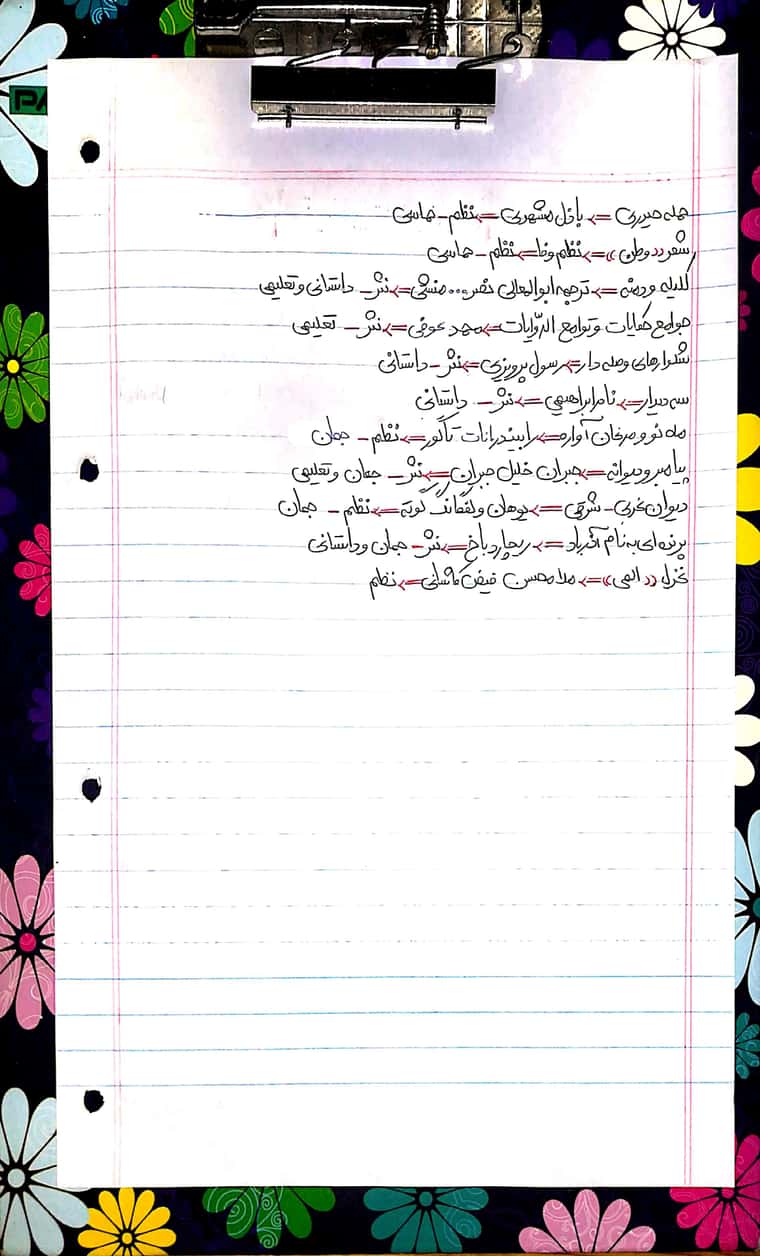 حمله حیدری => باذل مشهدی => نظم - حماسی
شعر «وطن» => نظام وفا => نظم - حماسی
کلیله و دمنه => ترجمه ابوالمعالی نصر... منشی => نثر - داستانی و تعلیمی
جوامع حکایات و لوامع الروّایات => محمد عوفی => نثر - تعلیمی
شلوارهای وصله دار => رسول پرویزی => نثر - داستانی
سه دیدار => نادر ابراهیمی => نثر - داستانی
ماه نو و مرغان آواره => رابیندرانات تاگور => نظم - جهان
پیامبر و دیوانه => جبران خلیل جبران => نثر - جهان و تعلیمی
دیوان غربی - شرقی => یوهان ولفگانگ گوته => نظم - جهان
پرنده‌ای به نام آذرباد => ریچارد باخ => نثر - جهان و داستانی
غزل «الهی» => ملا محسن فیض کاشانی => نظم
PA